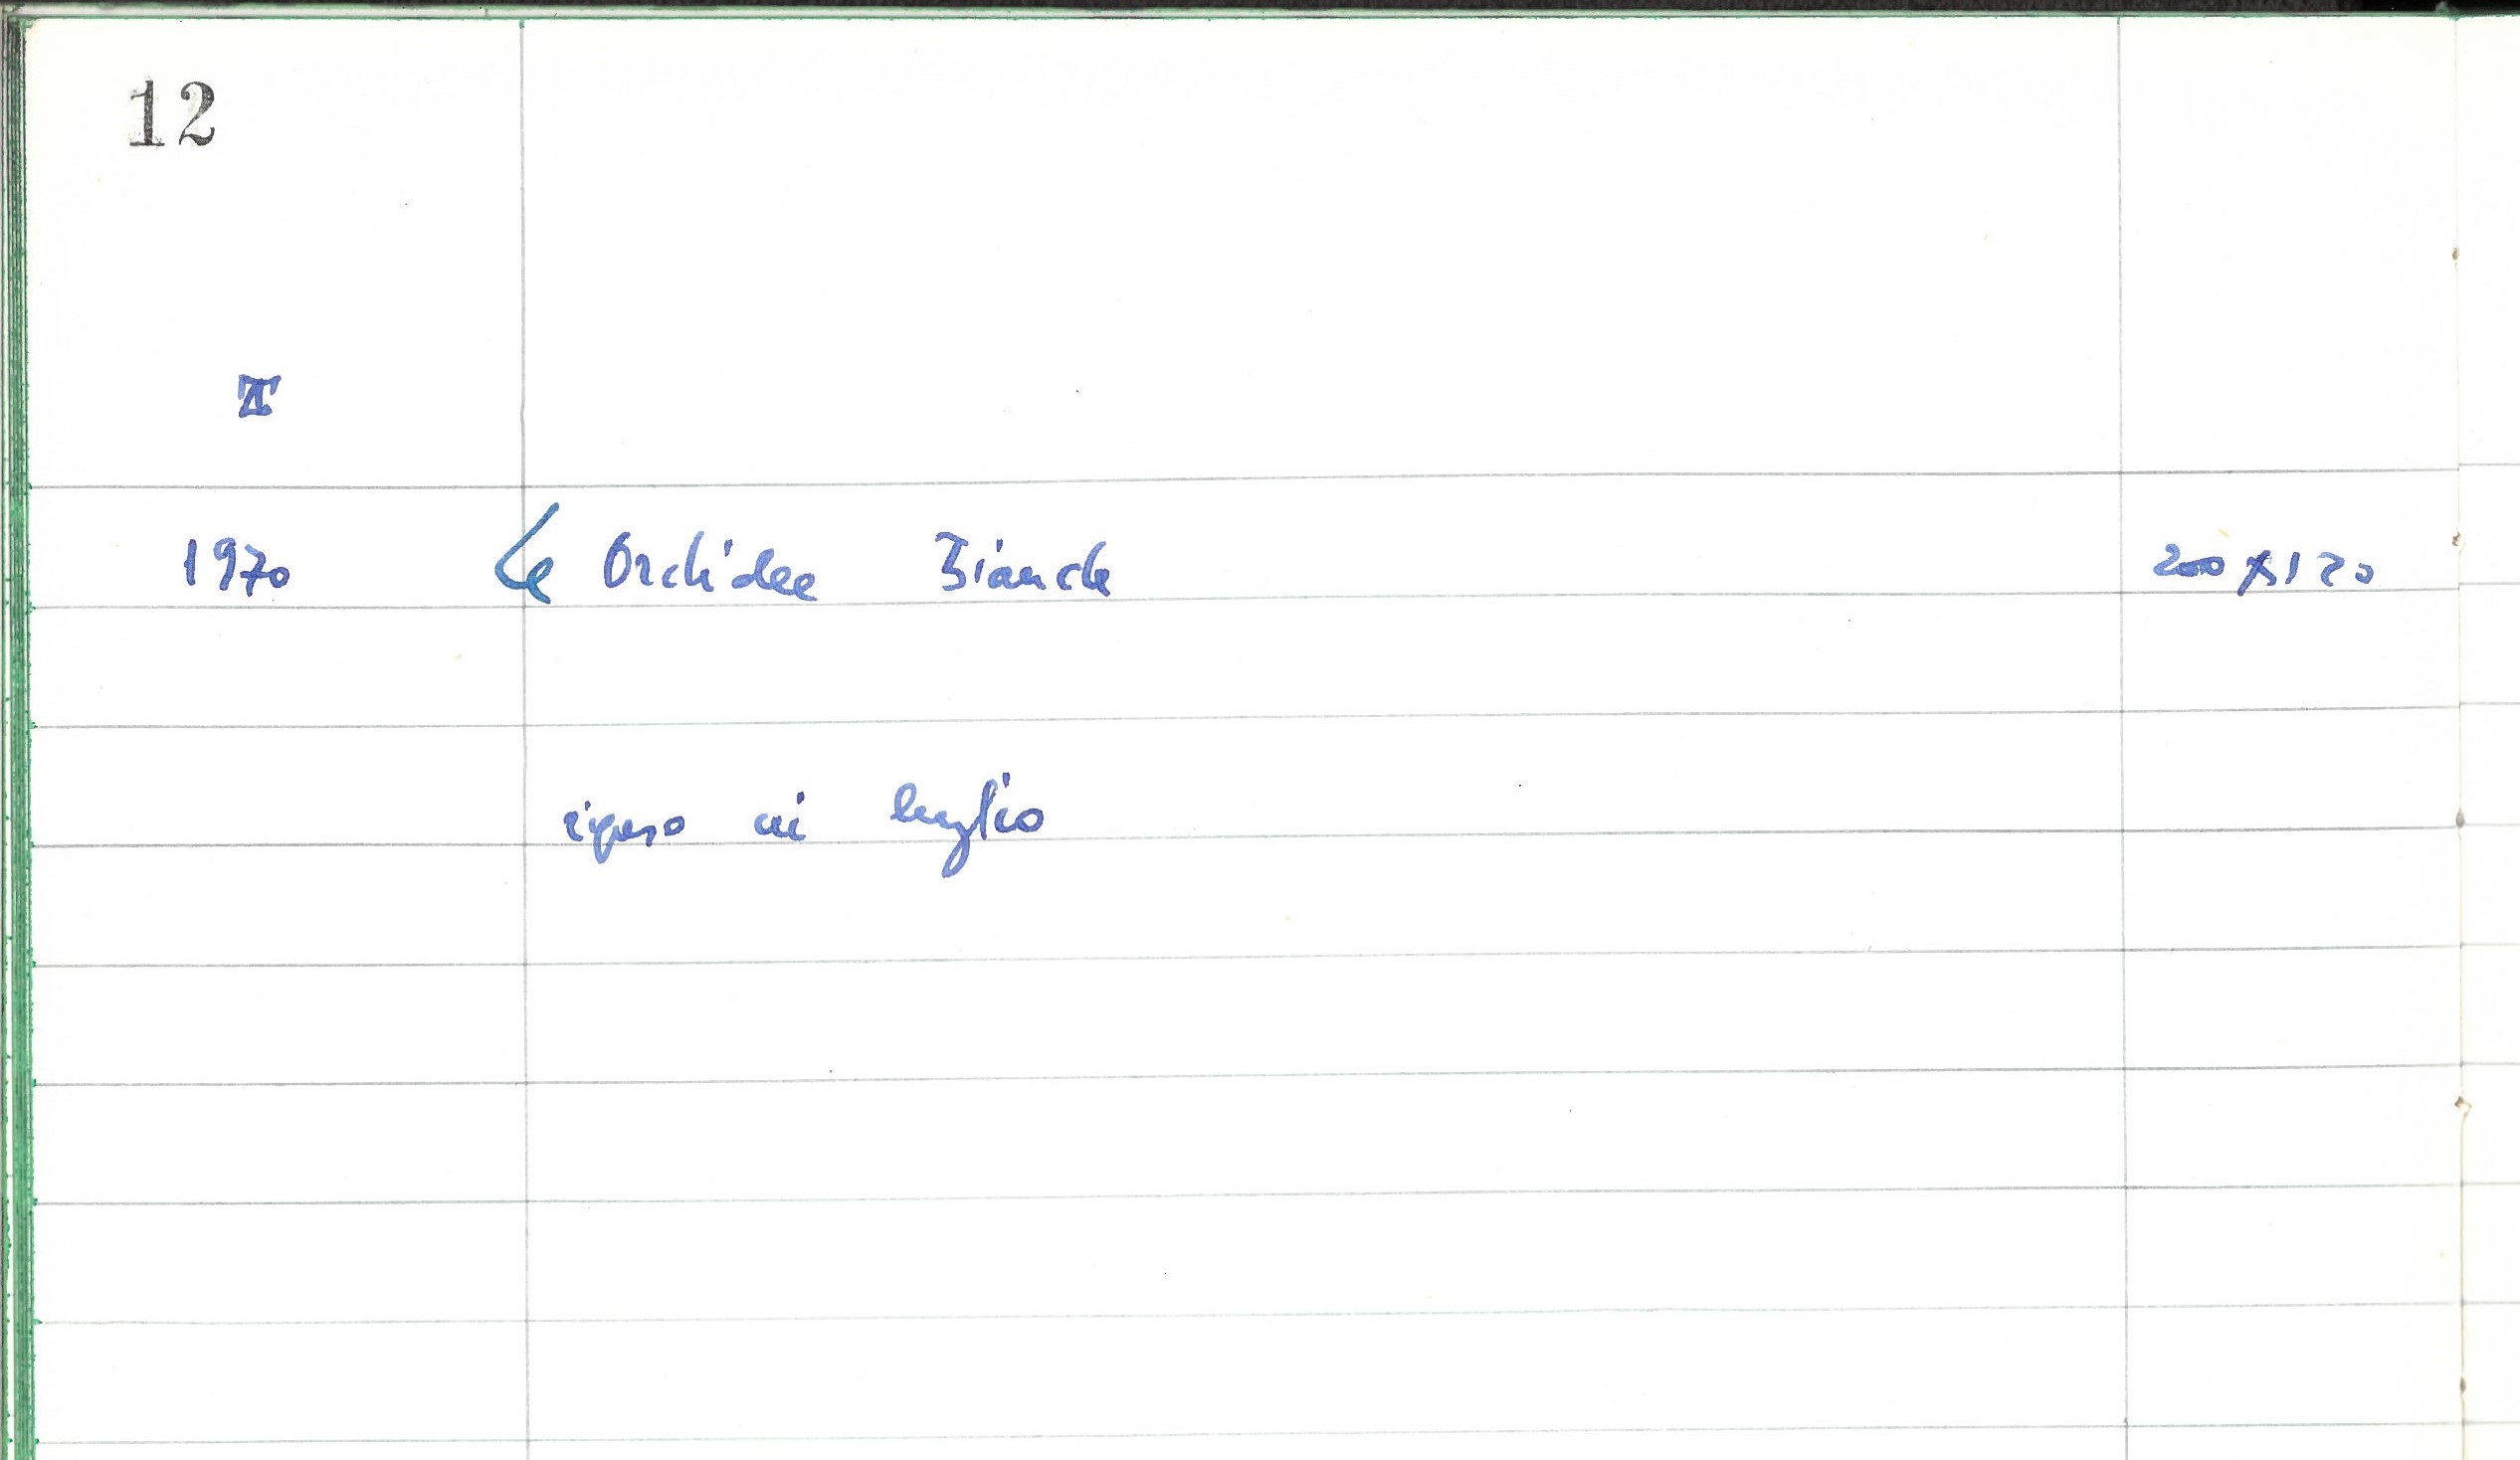 12
1970 Le Orchidee Bianche 200 x 120
ripreso in luglio